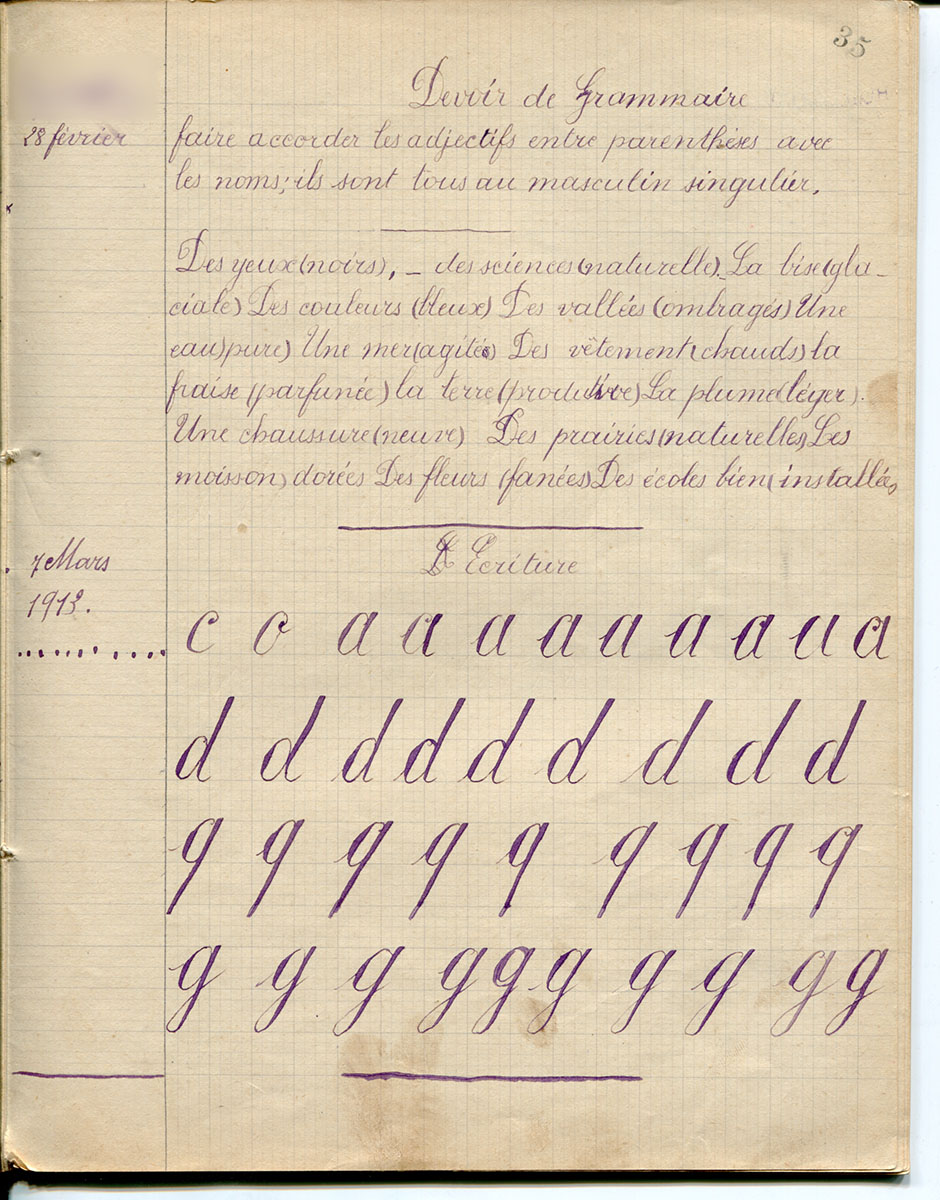 35
Devoir de Grammaire
28 février
faire accorder les adjectifs entre parenthèses avec
les noms; ils sont tous au masculin singulier.
Des yeux (noirs), _ des sciences (naturelle). La bise (gla-
ciale) Des couleurs (bleux) Des vallées (ombragés) Une
eau) pure) Une mer (agitée) Des vêtement (chauds) la
fraise (parfunée) la terre (productive) La plume (léger).
Une chaussure (neuve) Des prairies (naturelles) Les
moisson) dorées Des fleurs (fanées) Des écoles bien (installées
7 Mars
1913.
Ecriture
c o a a a a a a a a a
d d d d d d d d d
q q q q q q q q q
g g g g g g g g g g